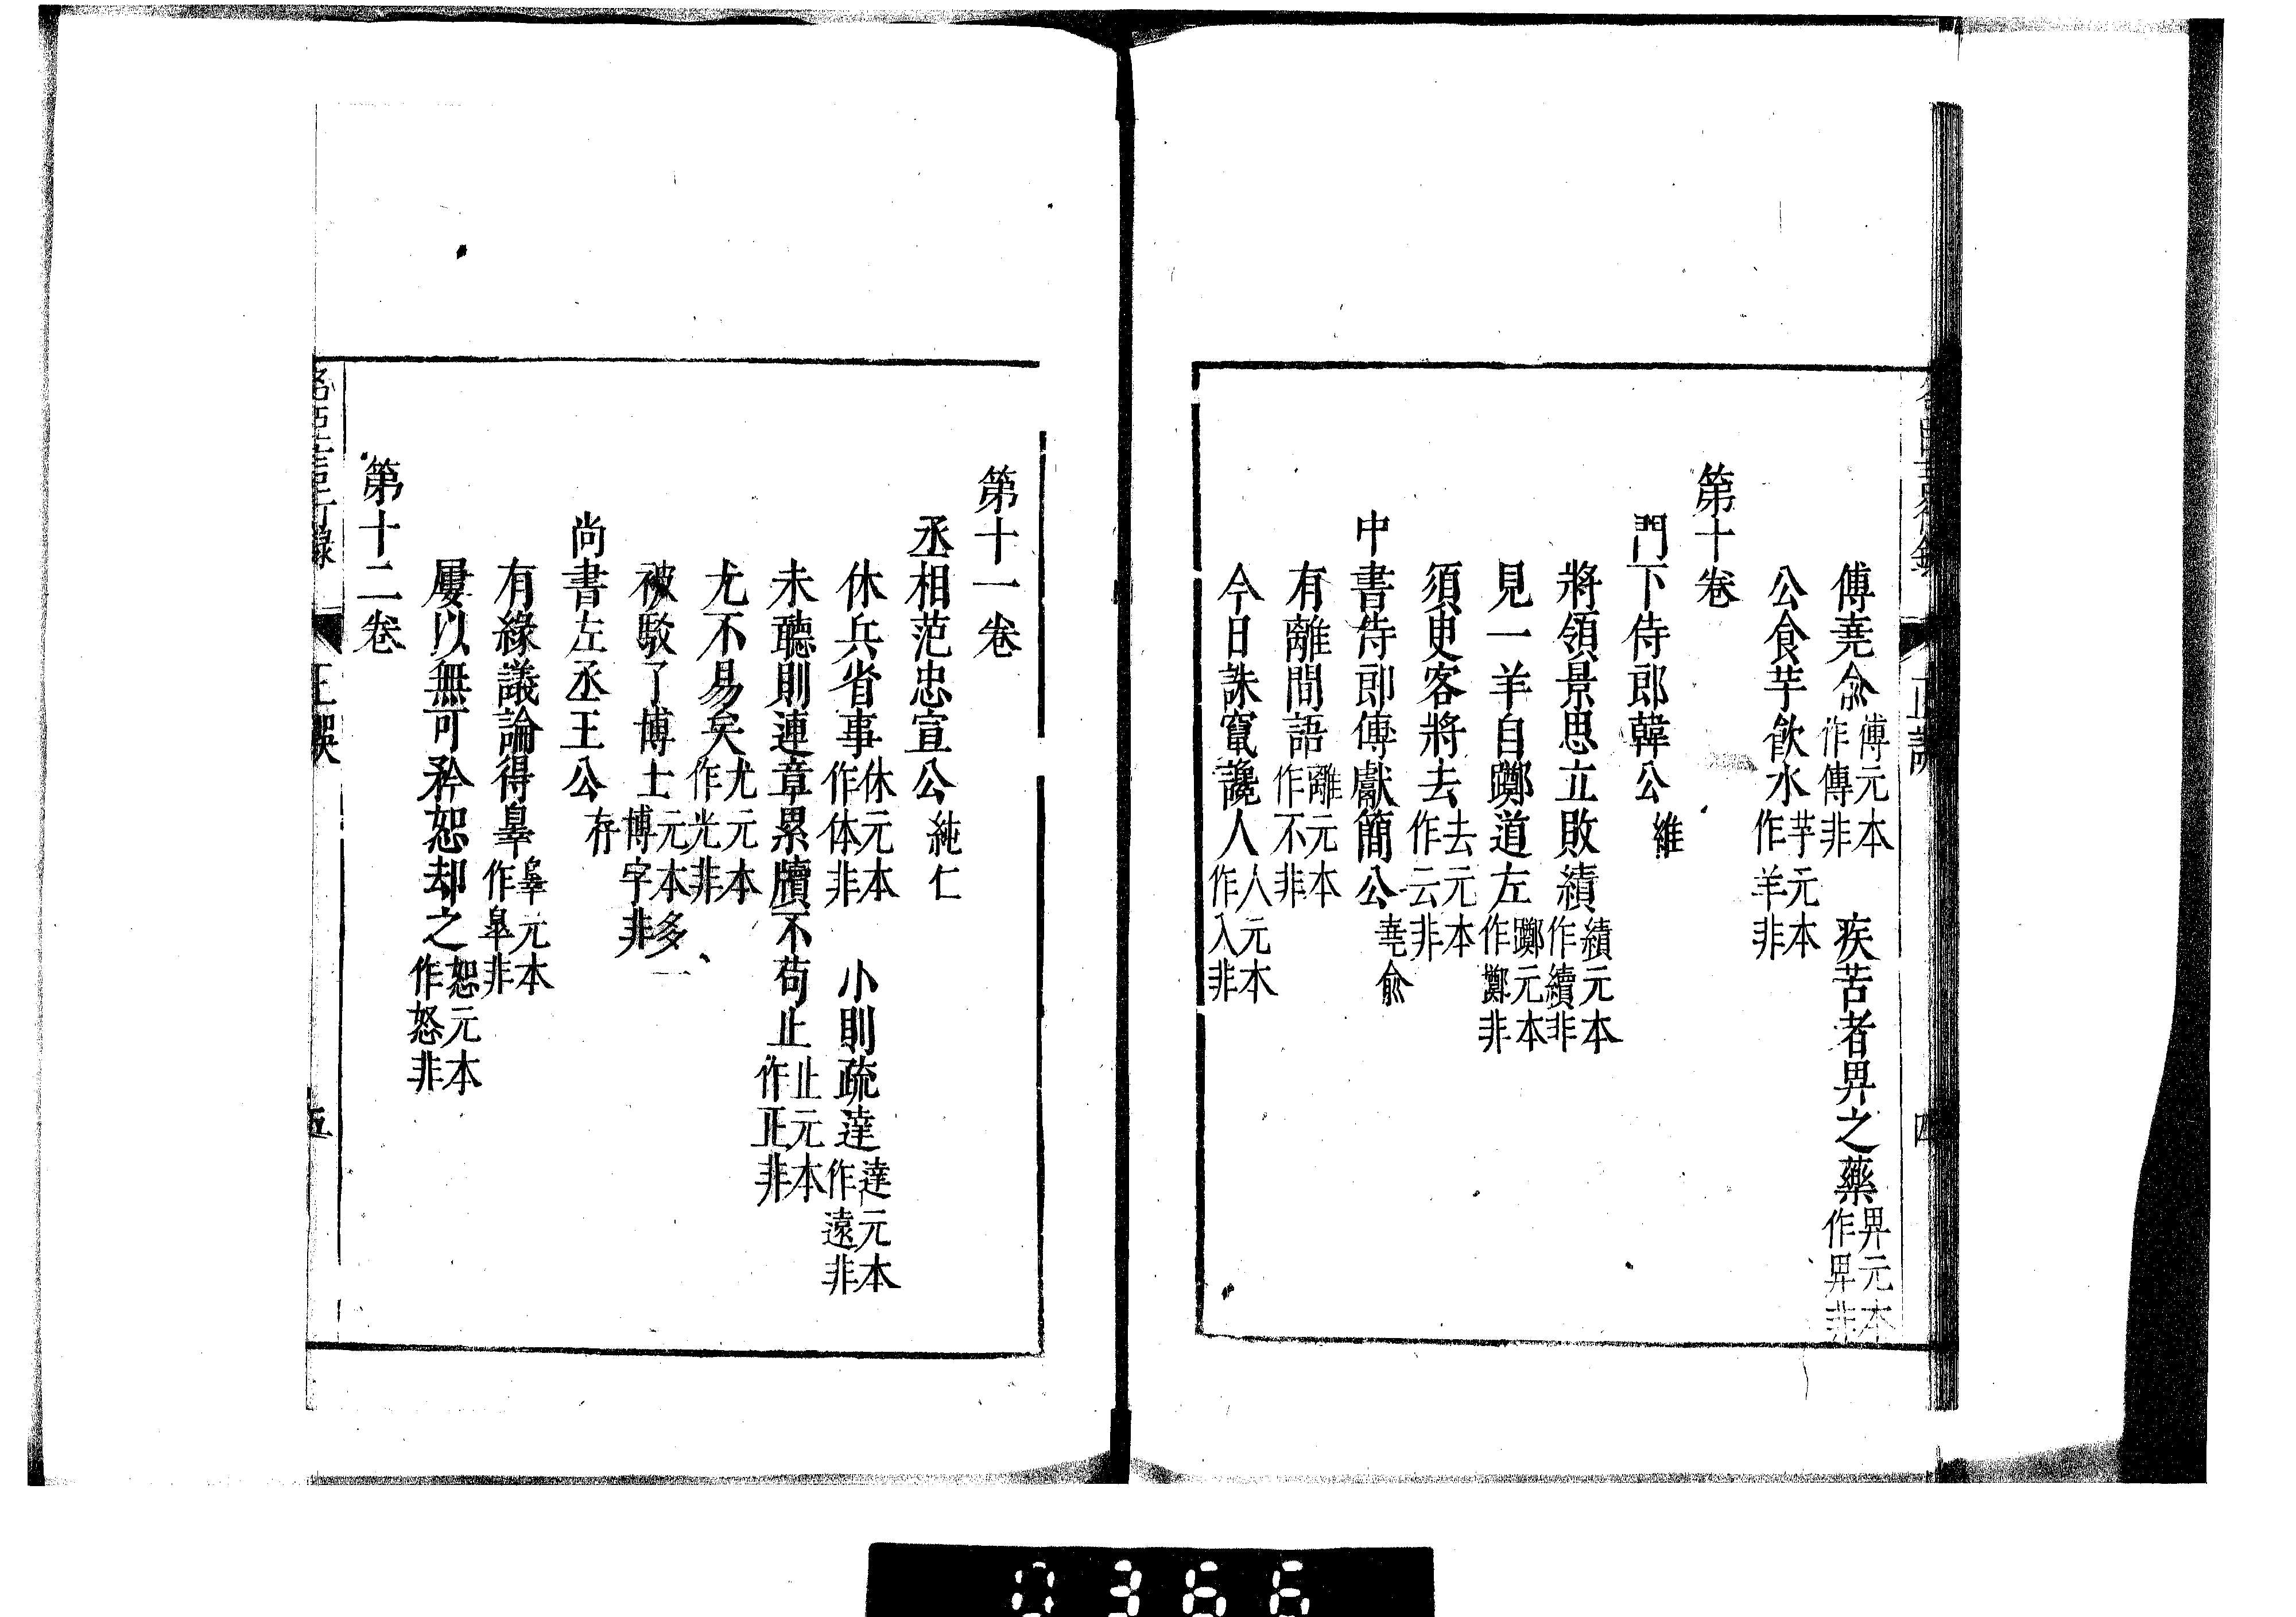 傅堯俞傅元本作傳非　疾苦者畀之藥畀元本作𢌿非
公食芋飲水芋元本作羊非
第十卷
門下侍郎韓公維
將領景思立敗績績元本作續非
見一羊自躑道左躑元本作擲非
須臾客將去去元本作云非
中書侍郎傅獻簡公堯俞
有離間語離元本作不非
今日誅竄讒人人元本作入非
四
第十一卷
丞相范忠宣公純仁
休兵省事休元本作体非　小則疏達達元本作遠非
未聽則連章累牘不苟止止元本作正非
尤不易矣尤元本作光非
被駁了博士元本多一博字非
尚書左丞王公存
有緣議論得辠辠元本作皐非
屢以無可矜恕却之恕元本作怒非
第十二卷
名臣言行錄　正誤　五
0366